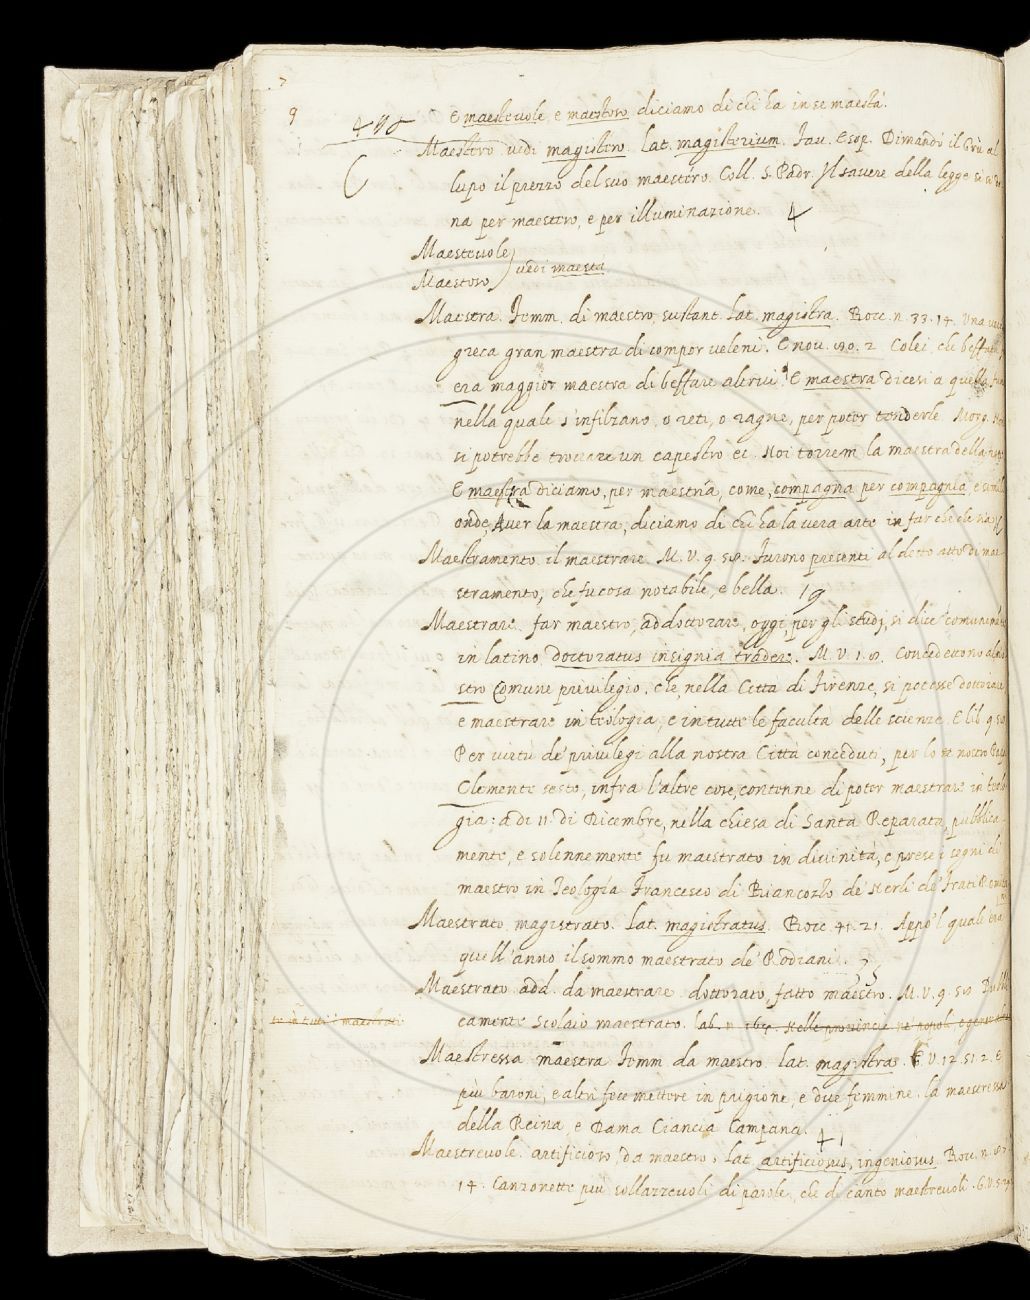 9
E maestevole, e maestoso diciamo di chi ha in se maestà.
Maestero vedi magistero. Lat. magisterium. Fav. Esop. Dimandò il Grù al
lupo il prezzo del suo maestèro. Coll. S. Padr. Il savere della legge si
na per maestero, e per illuminazione. 4
Maestevole
Maestoso vedi maestà
Maestra. Femm. di maestro, sustant. Lat. magistra. Bocc. n. 33. 14. Una
greca gran maestra di compor veleni. E nov. 80. 2. Colei, che
era maggior maestra di beffare altrui. E maestra dicesi a quella
nella quale s'infilzano, o reti, o ragne, per poter tenderle. Morg.
si potrebbe trovare un capestro ec. Noi torrem la maestra della
E maestra diciamo, per maestria, come, compagna per compagnia, e
onde, Aver la maestra, diciamo di chi ha la vera arte in far che che sia
Maestramento. il maestrare. M. V. 9. 58. Furono presenti al detto atto di mae-
stramento, che fu cosa notabile, e bella. 19
Maestrare. far maestro, addottorare, oggi per gli studj, si dice comunem
in latino, doctoratus insignia tradere. M. V. 1. 8. Concedettono al no
stro Comune privilegio, che, nella Città di Firenze, si potesse dottorare
e maestrare in teologia, e in tutte le facultà delle scienze. E lib. 9. 58
Per virtù de' privilegi alla nostra Città conceduti, per lo nostro Papa
Clemente sesto, infra l'altre cose, contenne di poter maestrare in teolo
gia: a dì 11. di Dicembre, nella chiesa di Santa Reparata, pubblica-
mente, e solennemente fu maestrato in divinità, e prese i segni di
maestro in Teologia Francesco di Biancozzo de' Nerli de' Frati Romita
Maestrato. magistrato. Lat. magistratus. Bocc. 41. 21. Appo 'l quale era
quell'anno il sommo maestrato de' Rodiani. 25
Maestrato. add. da maestrare. dottorato, fatto maestro. M. V. 9. 58. Pubbli
camente scolaio maestrato. Nelle provincie ne' popoli, e gente
te in tutti i maestrati
Maestressa. maestra. Femm. da maestro. Lat. magistra. G. V. 12. 51. 2. E
più baroni, e altri fece mettere in prigione, e due femmine. La maestressa
della Reina, e Dama Ciancia Campana. 41
Maestrevole. artificioso, da maestro. Lat. artificiosus, ingeniosus. Bocc. n.
14. Canzonette più sollazzevoli di parole, che di canto maestrevoli. G. V.